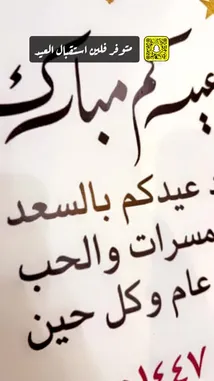 متوفر فلين استقبال العيد
عيدكم مبارك
عيدكم بالسعد
والحب
عام وكل حين
١٤٤٧